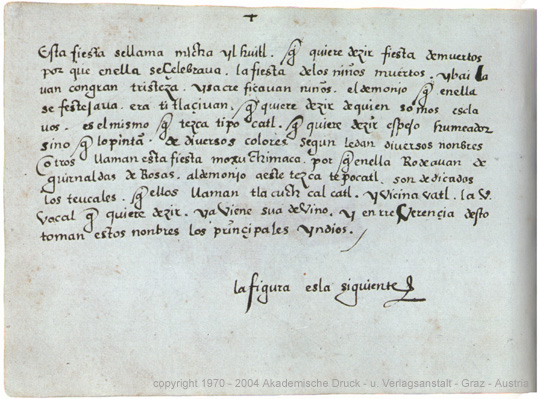 Esta fiesta sellama micha ylhuitl. q̃ quiere dezir fiesta demuertos
por que enella seçelebraua. la fiesta delos niños muertos. y bai la
uan congran tristeza. ysacre ficauan niños. el demonjo q̃ enella
se festejaua. era titlaçiuan. q̃ quiere dezir dequien somos escla
uos. es el mismo q̃ tezca tipo catl. q̃ quiere dezir espejo humeador
sino q̃ lo pintã. de diuersos colores segun ledan diuersos nonbres
otros llaman esta fiesta moxuchimaca. por q̃ enella Rodeauan de
guirnaldas de Rosas. al demonjo aeste tezca tepocatl. son dedicados
los teucales. q̃ ellos llaman tla cuch cal catl. y vicina vatl. la v.
vacal q̃ quiere dezir. ya viene sua deuino. y en tre Verençia desto
toman estos nonbres los prinçipales yndios.
la figura esla siguiente
copyright 1970 - 2004 Akademische Druck - u. Verlagsanstalt - Graz - Austria